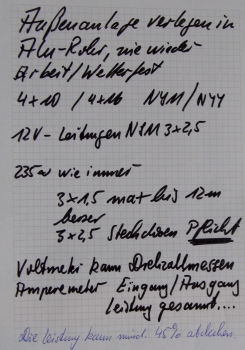 Außenanlage verlegen in
Alu-Rohr, nie wieder
Arbeit/Wetterfest
4x10 / 4x16 NYM/NYY
12V-Leitungen NYM 3x2,5
235W wie immer
3x1,5 mat bis 12m
besser
3x2,5 Steckdosen Pflicht
Voltmeter kann Drehzahlmessen
Amperemeter Eingang/Ausgang
Leistung gesamt....
Die Leistung kann mind. 45% abdecken.